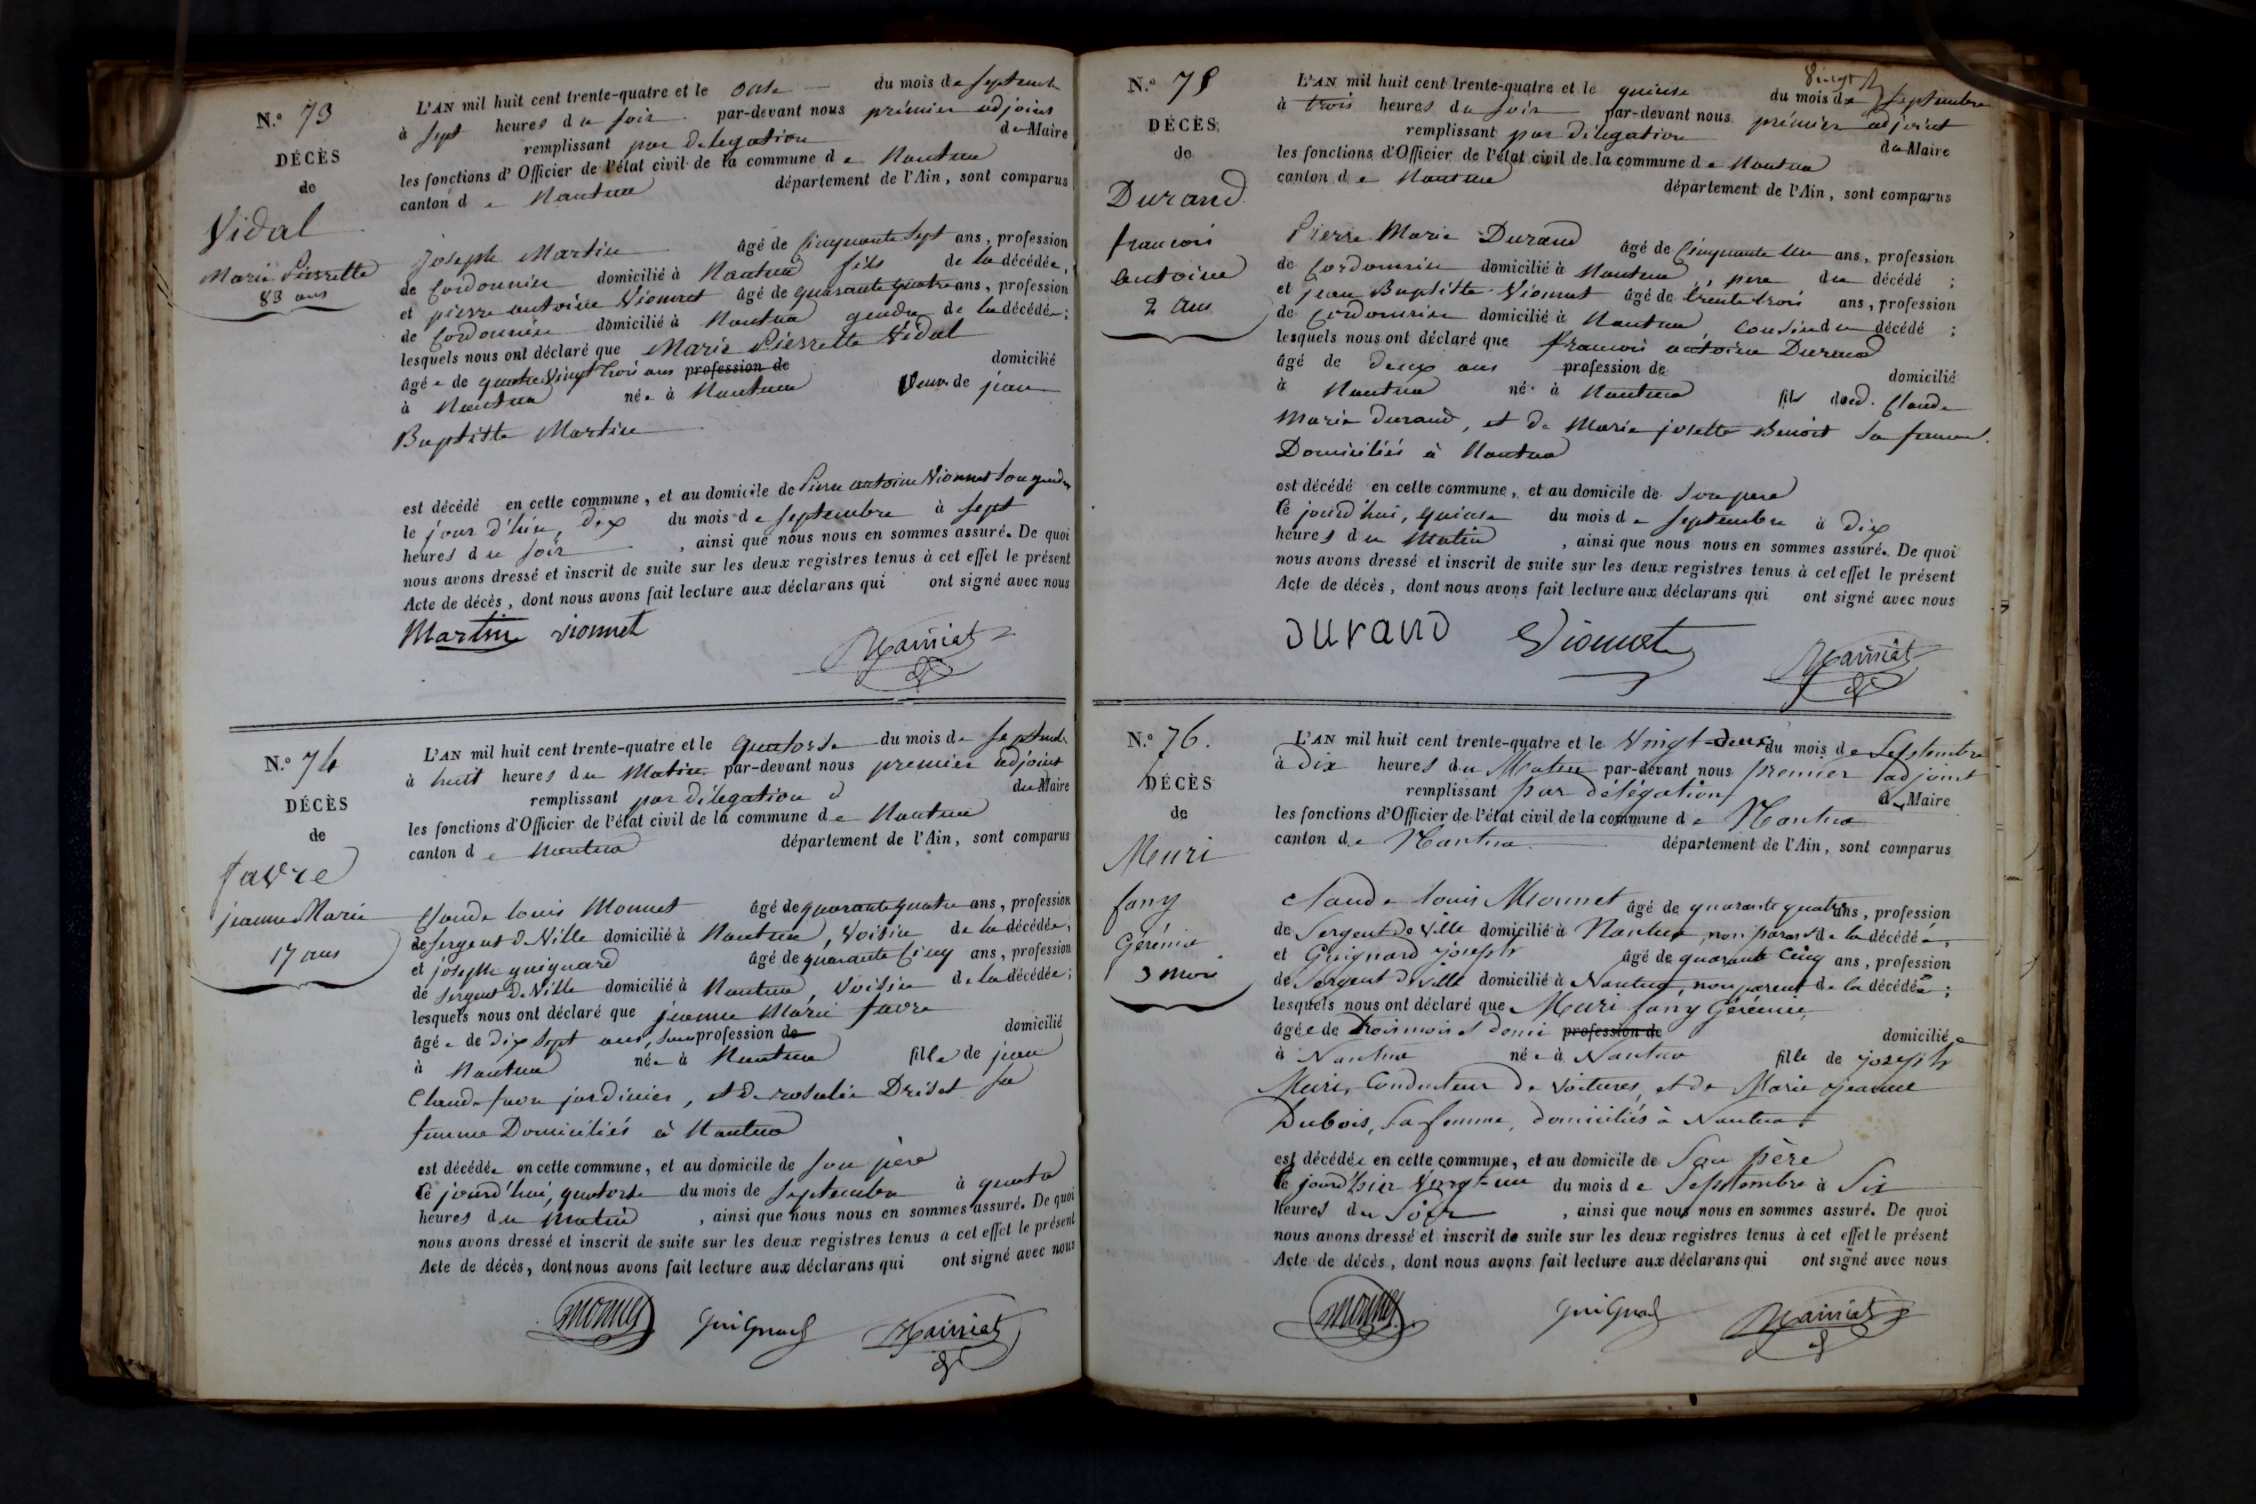 N.° 73
DÉCÈS
de
Vidal
Marie Pierrette
83 ans
L'AN mil huit cent trente-quatre et le onze du mois de septembre
à sept heures du soir par-devant nous prémier adjoint
remplissant par délégation du Maire
les fonctions d'Officier de l'état civil de la commune de Nantua
canton de Nantua département de l'Ain, sont comparus
Joseph Martin âgé de Cinquante Sept ans, profession
de Cordonnier domicilié à Nantua fils de la décédée,
et pierre antoine Vionnet âgé de quarante quatre ans, profession
de Cordonnier domicilié à Nantua gendre de la décédée;
lesquels nous ont déclaré que Marie Pierrette Vidal
âgée de quatre Vingt trois ans profession de domicilié
à Nantua née à Nantua Veuve de jean
Baptiste Martin
est décédé en cette commune, et au domicile de Pierre antoine Vionnet son gendre
le jour d'hier, dix du mois de septembre à sept
heures du soir, ainsi que nous nous en sommes assuré. De quoi
nous avons dressé et inscrit de suite sur les deux registres tenus à cet effet le présent
Acte de décès, dont nous avons fait lecture aux déclarans qui ont signé avec nous
Martin vionnet
N.° 74
DÉCÈS
de
favre
jeanne Marie
17 ans
L'AN mil huit cent trente-quatre et le quatorse du mois de septembre
à huit heures du Matin par-devant nous premier adjoint
remplissant par délégation du Maire
les fonctions d'Officier de l'état civil de la commune de Nantua
canton de Nantua département de l'Ain, sont comparus
Claude louis Monnet âgé de quarante quatre ans, profession
de sergent de Ville domicilié à Nantua, Voisin de la décédée,
et joseph guignard âgé de quarante Cinq ans, profession
de sergent de Ville domicilié à Nantua, Voisin de la décédée;
lesquels nous ont déclaré que jeanne Marie favre
âgée de dix sept ans, sans profession de domicilié
à Nantua née à Nantua fille de jean
Claude favre jardinier, et de rosalie Driset sa
femme Domiciliés à Nantua
est décédée en cette commune, et au domicile de son père
Ce jourd'hui, quatorse du mois de septembre à quatre
heures du matin, ainsi que nous nous en sommes assuré. De quoi
nous avons dressé et inscrit de suite sur les deux registres tenus a cet effet le présent
Acte de décès, dont nous avons fait lecture aux déclarans qui ont signé avec nous
monnet Guignard
N.° 75
DÉCÈS
de
Durand
francois
antoine
2 ans
L'AN mil huit cent trente-quatre et le quinse du mois de septembre
à trois heures du soir par-devant nous prémier adjoint
remplissant par délégation du Maire
les fonctions d'Officier de l'état civil de la commune de Nantua
canton de Nantua département de l'Ain, sont comparus
Pierre Marie Durand âgé de Cinquante Un ans, profession
de Cordonnier domicilié à Nantua, pere du décédé;
et jean Baptiste Vionnet âgé de trente trois ans, profession
de Cordonnier domicilié à Nantua, Cousin du décédé;
lesquels nous ont déclaré que francois antoine Durand
âgé de deux ans profession de domicilié
à Nantua né à Nantua fils dud. Claude
Marie Durand, et de Marie josette Benoit sa femme.
Domiciliés à Nantua
est décédé en cette commune, et au domicile de son pere
Ce jourd'hui, quinse du mois de septembre à Dix
heures du Matin, ainsi que nous nous en sommes assuré. De quoi
nous avons dressé et inscrit de suite sur les deux registres tenus à cet effet le présent
Acte de décès, dont nous avons fait lecture aux déclarans qui ont signé avec nous
Durand Vionnet
N.° 76.
DÉCÈS
de
Muri
fany
Gérémie
3 mois
L'AN mil huit cent trente-quatre et le Vingt-deux du mois de Septembre
à Dix heures du Matin par-devant nous premier adjoint
remplissant par délégation du Maire
les fonctions d'Officier de l'état civil de la commune de Nantua
canton de Nantua département de l'Ain, sont comparus
Claude louis Monnet âgé de quarante quatre ans, profession
de Sergent de Ville domicilié à Nantua, non parent de la décédée,
et Guignard joseph âgé de quarante Cinq ans, profession
de Sergent de ville domicilié à Nantua, non parent de la décédée;
lesquels nous ont déclaré que Muri fany Gérémie,
âgée de trois mois et demi profession de domiciliée
à Nantua née à Nantua fille de joseph
Muri, Conducteur de Voitures, et de Marie jeanne
Dubois, Sa femme, domiciliés à Nantua
est décédée en cette commune, et au domicile de Son père
le jourd'hier Vingt-un du mois de Septembre à Six
heures du Soir, ainsi que nous nous en sommes assuré. De quoi
nous avons dressé et inscrit de suite sur les deux registres tenus à cet effet le présent
Acte de décès, dont nous avons fait lecture aux déclarans qui ont signé avec nous
monnet Guignard